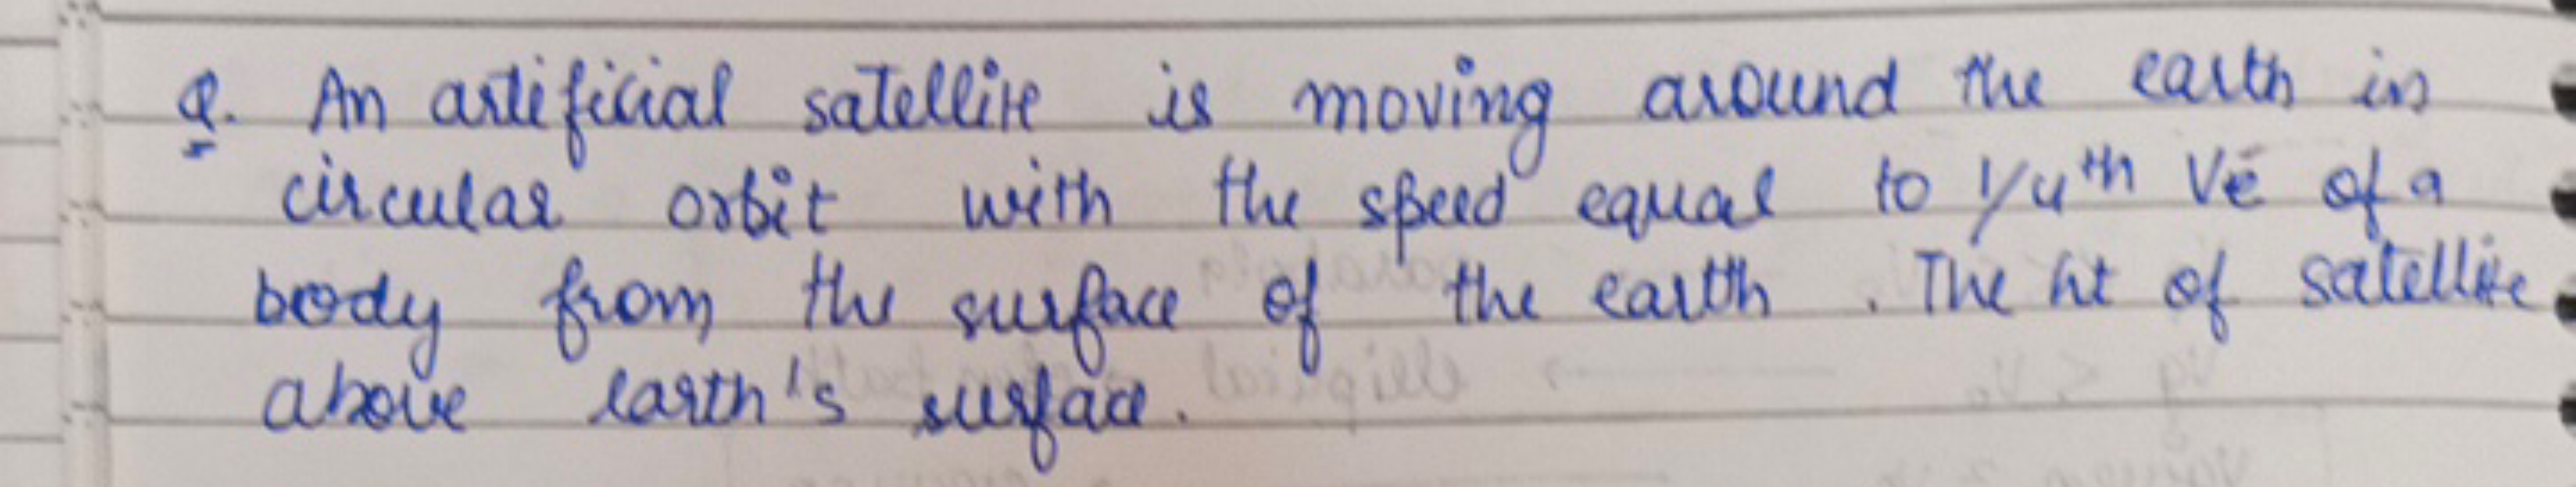 Q. An artificial satellite is moving around the earth in
circular orbit with the speed equal to 1/4th Ve of a
body from the surface of the earth. The ht of satellite
above earth's surface.